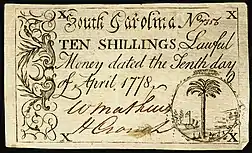 X X
South Carolina No
TEN SHILLINGS, Lawful
Money dated the Tenth day
of April, 1778
X X